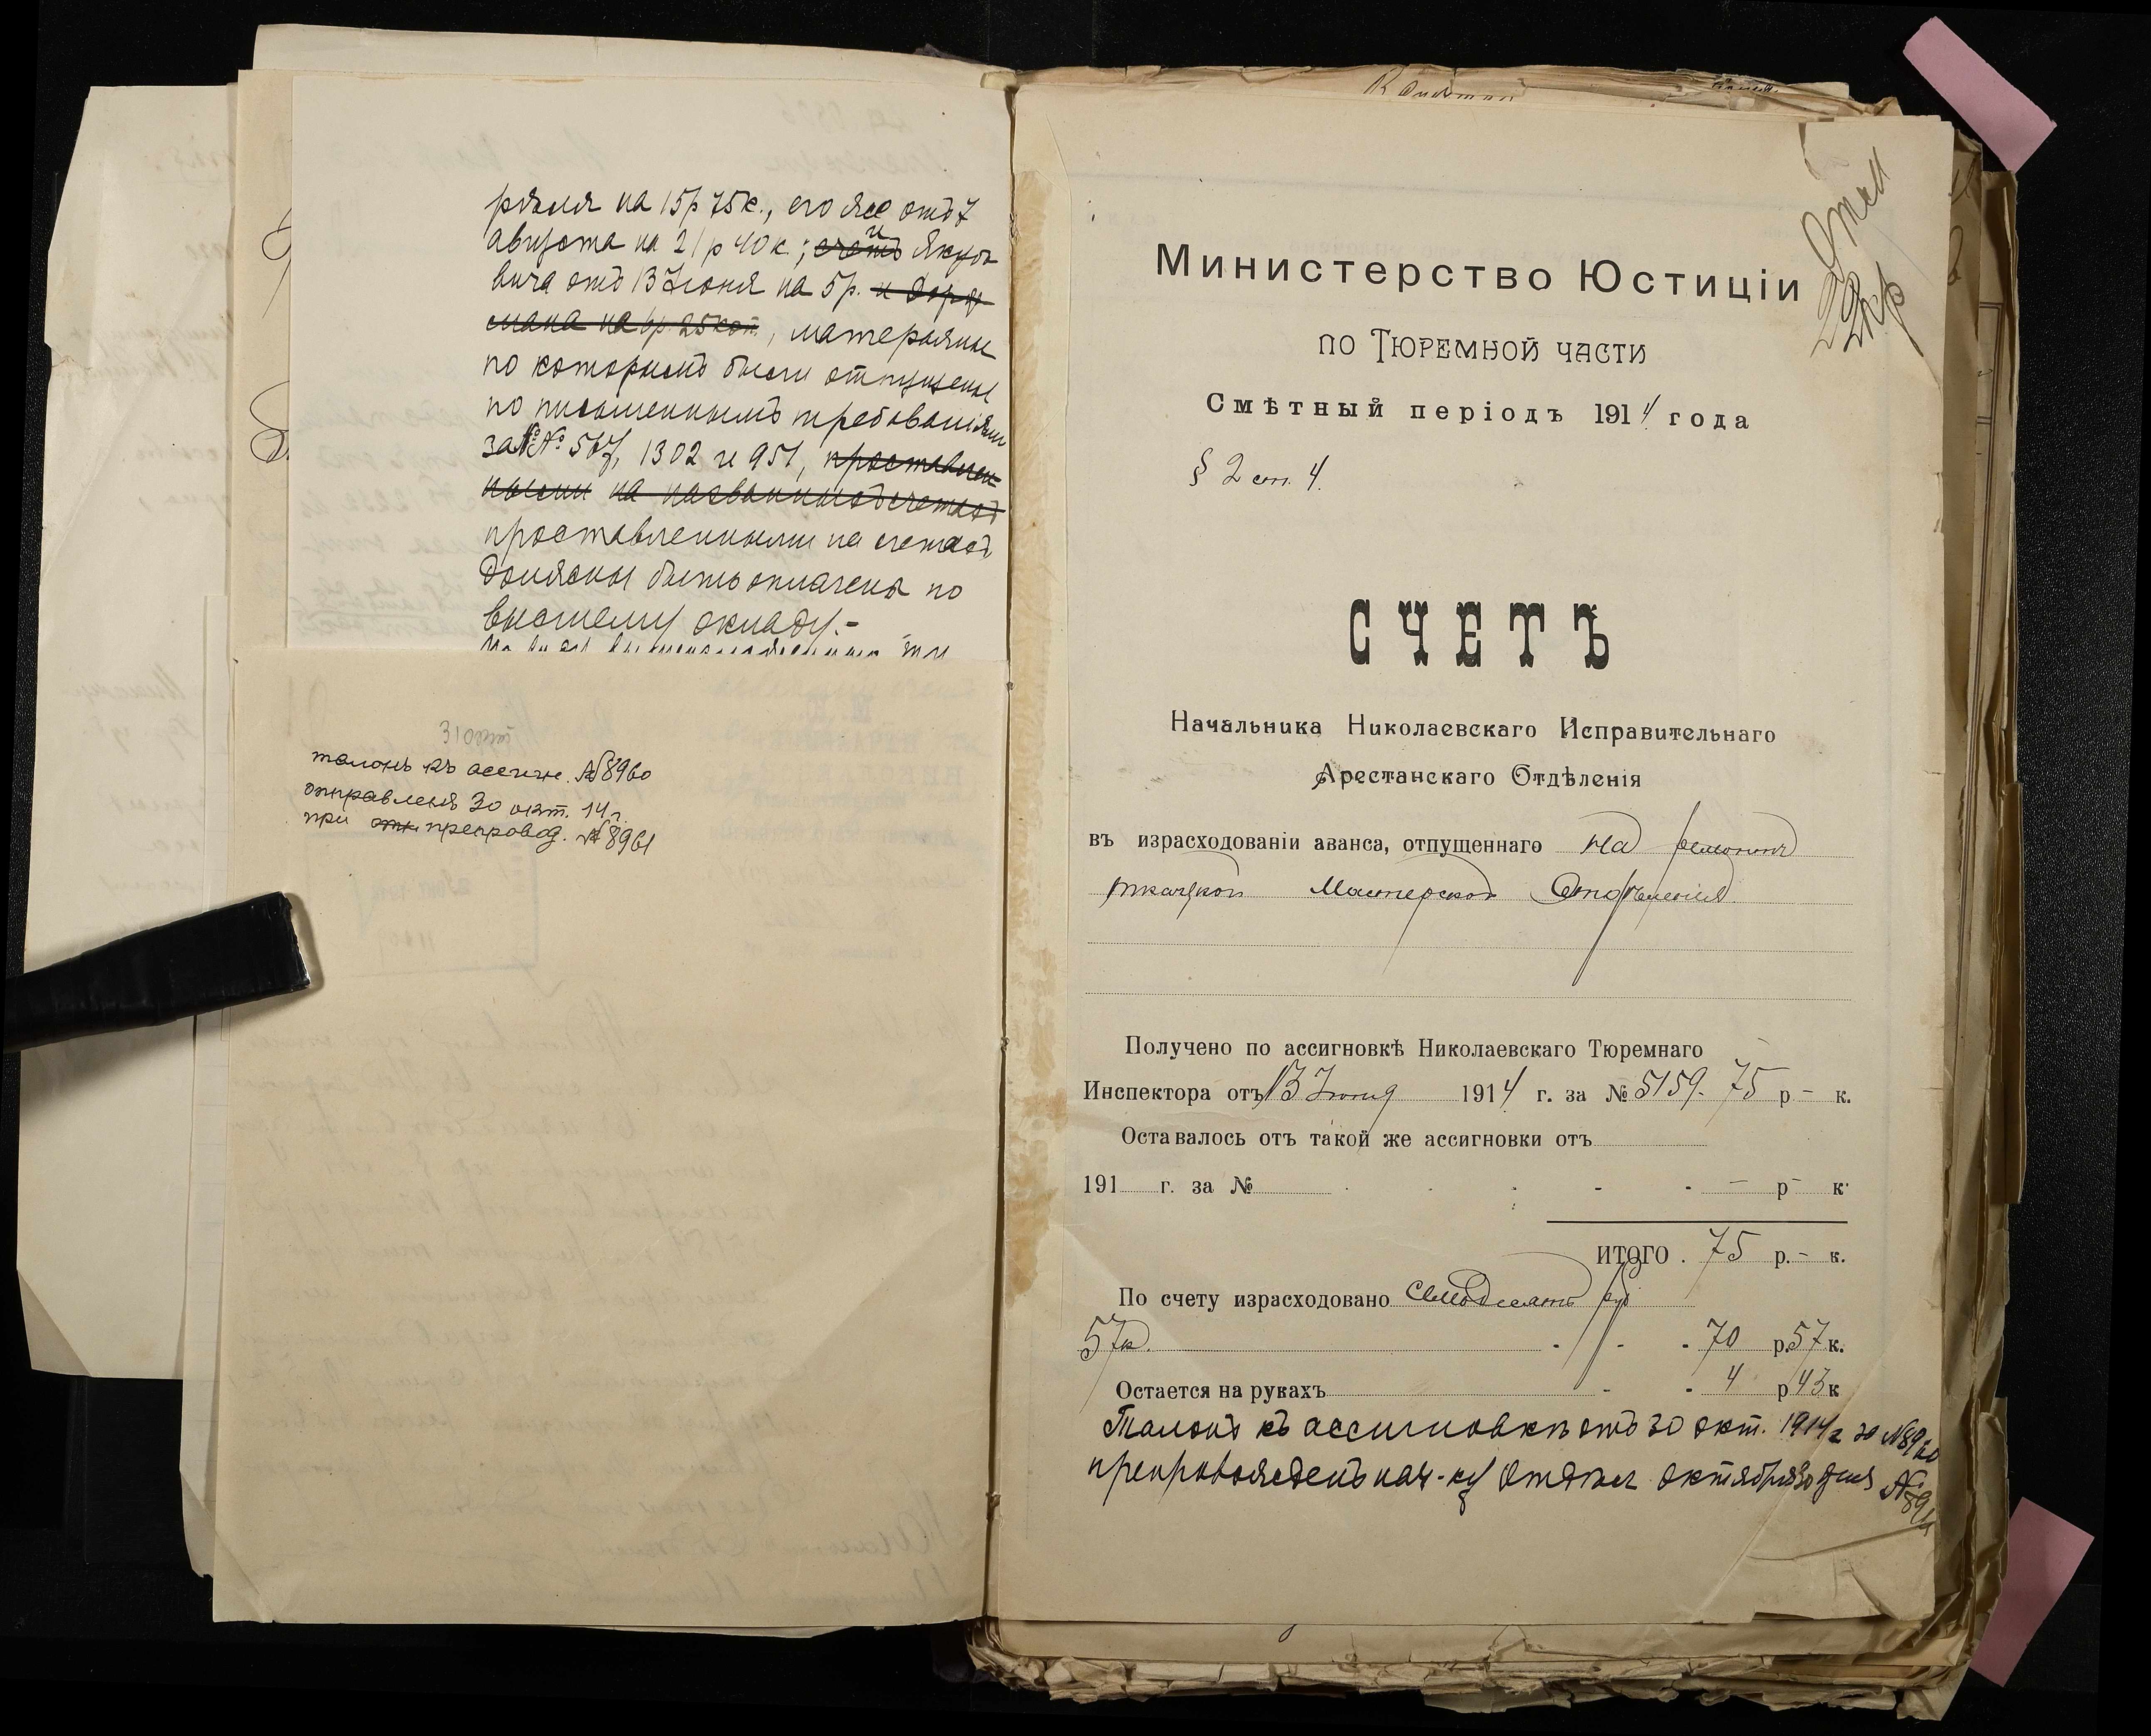 рѣля на 15р 75к., его же отъ 7
августа на 21 р 40 к; счетъ и Якубо
вича отъ 13 Іюня на 5р. и Дорф
мана на 6р. 25коп., матерьялы
по которымъ были отпущены
по письменнымъ требованіям
за №№ 567, 1302 и 951, проставлен
ными на названныхъ счетахъ
проставленными на счетахъ
должны быть оплачены по
высшему окладу.-
31 окт
талонъ къ ассигн. №8960
отправленъ 30 окт. 14 г.
при отн. препровод. №8961
Министерство Юстиціи
по Тюремной части
Смѣтный періодъ 1914 года
§ 2 ст. 4.
СЧЕТЪ
Начальника Николаевскаго Исправительнаго
Арестанскаго Отдѣленія
въ израсходованіи аванса, отпущеннаго на ремонтъ
ткацкой Мастерской Отдѣленія
Получено по ассигновкѣ Николаевскаго Тюремнаго
Инспектора отъ 13 Іюня 1914 г. за № 5159. 75 р - к.
Оставалось отъ такой же ассигновки отъ
191 г. за № - - - р - к.
ИТОГО . 75 р. - к.
По счету израсходовано семьдесятъ руб
57к. - - - 70 р. 57 к.
Остается на рукахъ - - 4 р 43 к
Талонъ къ ассигновкѣ отъ 30 окт. 1914 г за №8960
препровожденъ нач-ку Отдѣл октября 30 дня №